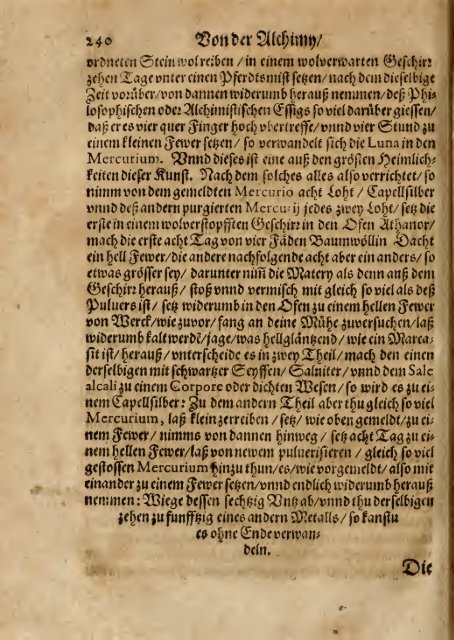 240 Von der Alchimy/
ordneten Stein wol reiben / in einem wolverwarten Geschirꝛ
zehen Tage vnter einen Pferdtsmist setzen / nach dem dieselbige
Zeit vorüber / von dannen widerumb herauß nemmen / deß Phi-
losophischen oder Alchimistischen Essigs so viel darüber giessen /
daß er es vier quer Finger hoch vbertreffe / vnnd vier Stund zu
einem kleinen Fewer setzen / so verwandelt sich die Luna in den
Mercurium. Vnnd dieses ist eine auß den größen Heimlich-
keiten dieser Kunst. Nach dem solches alles also verrichtet / so
nimm von dem gemeldten Mercurio acht Loht / Capellsilber
vnnd deß andern purgierten Mercurij jedes zwey Loht / setz die
erste in einem wolverstopfften Geschirꝛ in den Ofen Athanor /
mach die erste acht Tag von vier Fäden Baumwöllin Dacht
ein hell Fewer / die andere nachfolgende acht aber ein anders / so
etwas grösser sey / darunter nim̃ die Matery als denn auß dem
Geschirꝛ herauß / stoß vnnd vermisch mit gleich so viel als deß
Puluers ist / setz widerumb in den Ofen zu einem hellen Fewer
von Werck / wie zuvor / fang an deine Mühe zuversuchen / laß
widerumb kalt werdē / jage / was hellglänzend / wie ein Marca-
sit ist / herauß / vnterscheide es in zwey Theil / mach den einen
derselbigen mit schwartzer Seyffen / Salniter / vnnd dem Sale
alcali zu einem Corpore oder dichten Wesen / so wird es zu ei-
nem Capellsilber: Zu dem andern Theil aber thu gleich so viel
Mercurium, laß klein zerreiben / setz / wie oben gemeldt / zu ei-
nem Fewer / nimms von dannen hinweg / setz acht Tag zu ei-
nem hellen Fewer / laß von newem puluerisieren / gleich so viel
gestossen Mercurium hinzu thun / es / wie vorgemeldt / also mit
einander zu einem Fewer setzen / vnnd endlich widerumb herauß
nemmen: Wiege dessen sechtzig Vntz ab / vnnd thu derselbigen
zehen zu funfftzig eines andern Metalls / so kanstu
es ohne Ende verwan-
deln.
Die